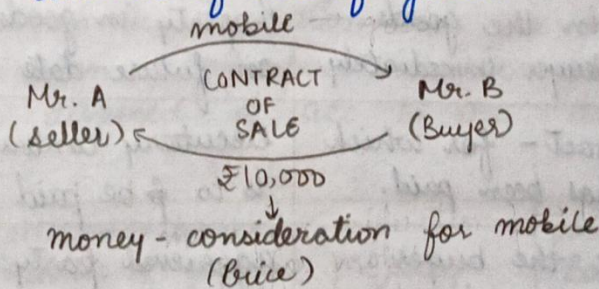 mobile
Mr. A
(seller)
CONTRACT
OF
SALE
Mr. B
(Buyer)
₹10,000
money - consideration for mobile
(Price)